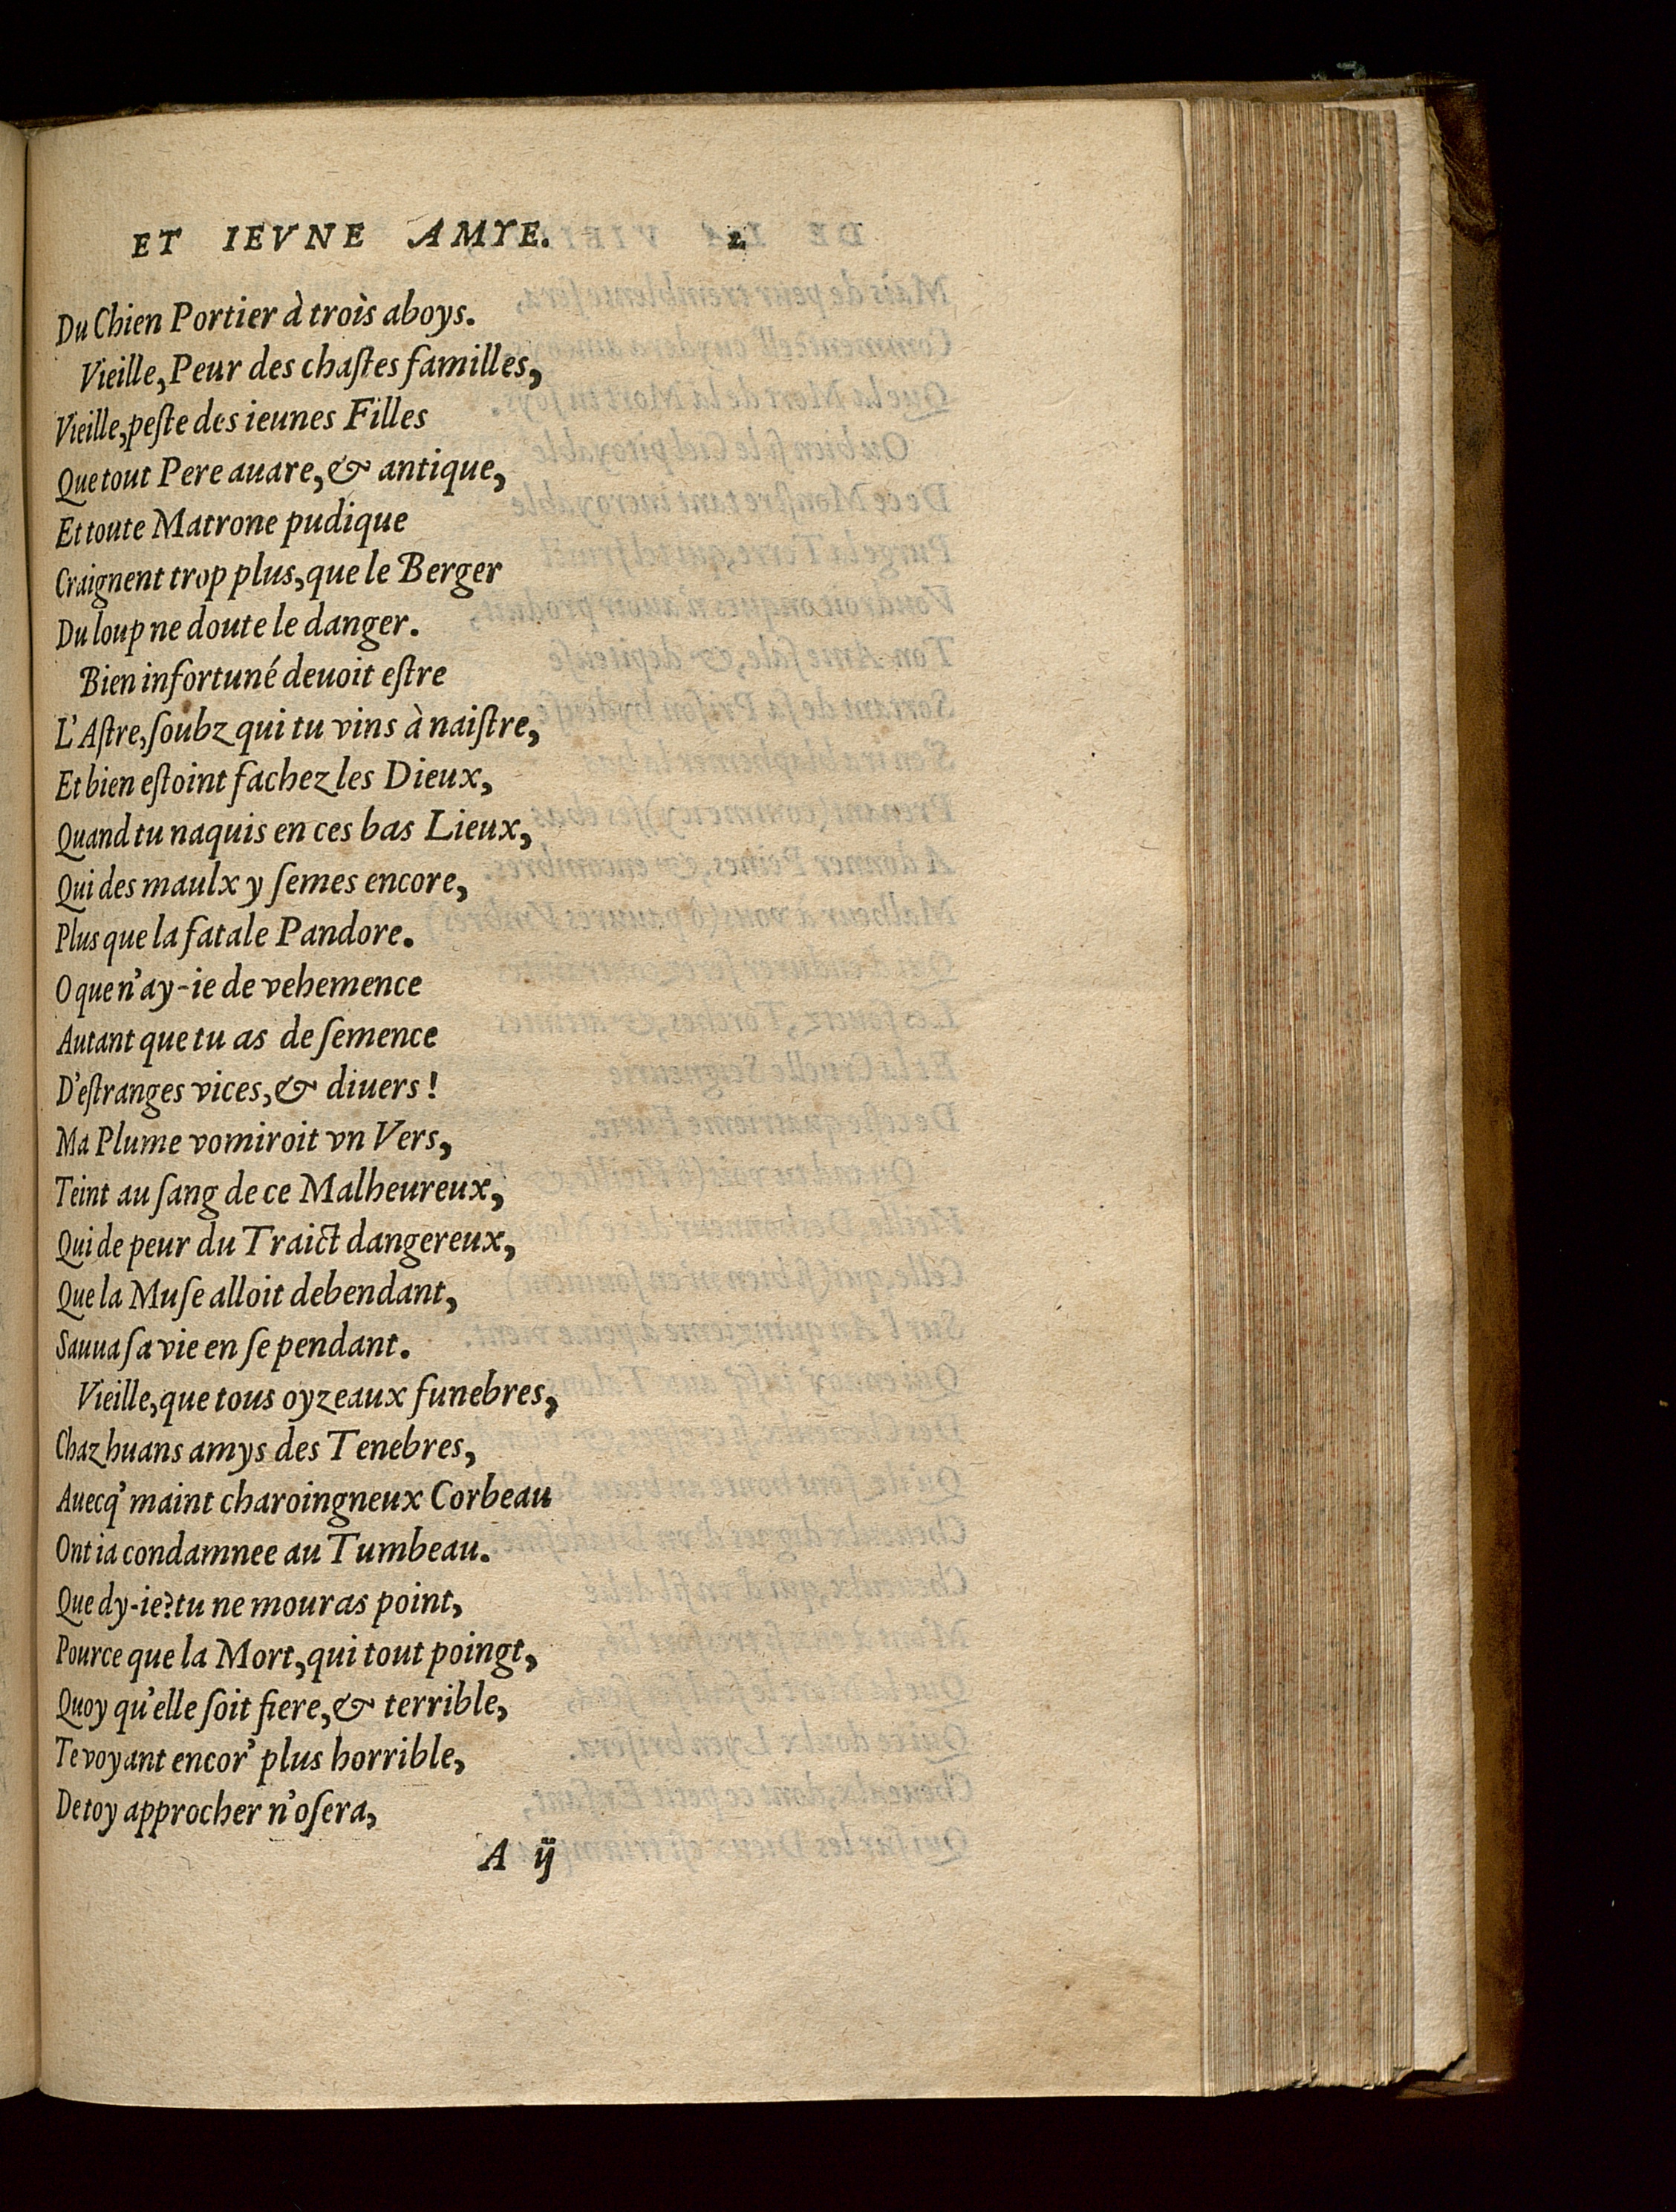 ET IEVNE AMYE. 2
Du Chien Portier à trois aboys.
Vieille, Peur des chaſtes familles,
Vieille, peſte des ieunes Filles
Que tout Pere auare, & antique,
Et toute Matrone pudique
Craignent trop plus, que le Berger
Du loup ne doute le danger.
Bien infortuné deuoit eſtre
L'Aſtre, ſoubz qui tu vins à naiſtre,
Et bien eſtoint fachez les Dieux,
Quand tu naquis en ces bas Lieux,
Qui des maulx y ſemes encore,
Plus que la fatale Pandore.
O que n'ay-ie de vehemence
Autant que tu as de ſemence
D'eſtranges vices, & diuers!
Ma Plume vomiroit vn Vers,
Teint au ſang de ce Malheureux,
Qui de peur du Traict dangereux,
Que la Muſe alloit debendant,
Sauua ſa vie en ſe pendant.
Vieille, que tous oyzeaux funebres,
Chaz huans amys des Tenebres,
Auecq' maint charoingneux Corbeau
Ont ia condamnee au Tumbeau.
Que dy-ie? tu ne mouras point,
Pource que la Mort, qui tout poingt,
Quoy qu'elle ſoit fiere, & terrible,
Te voyant encor' plus horrible,
De toy approcher n'oſera,
A ij